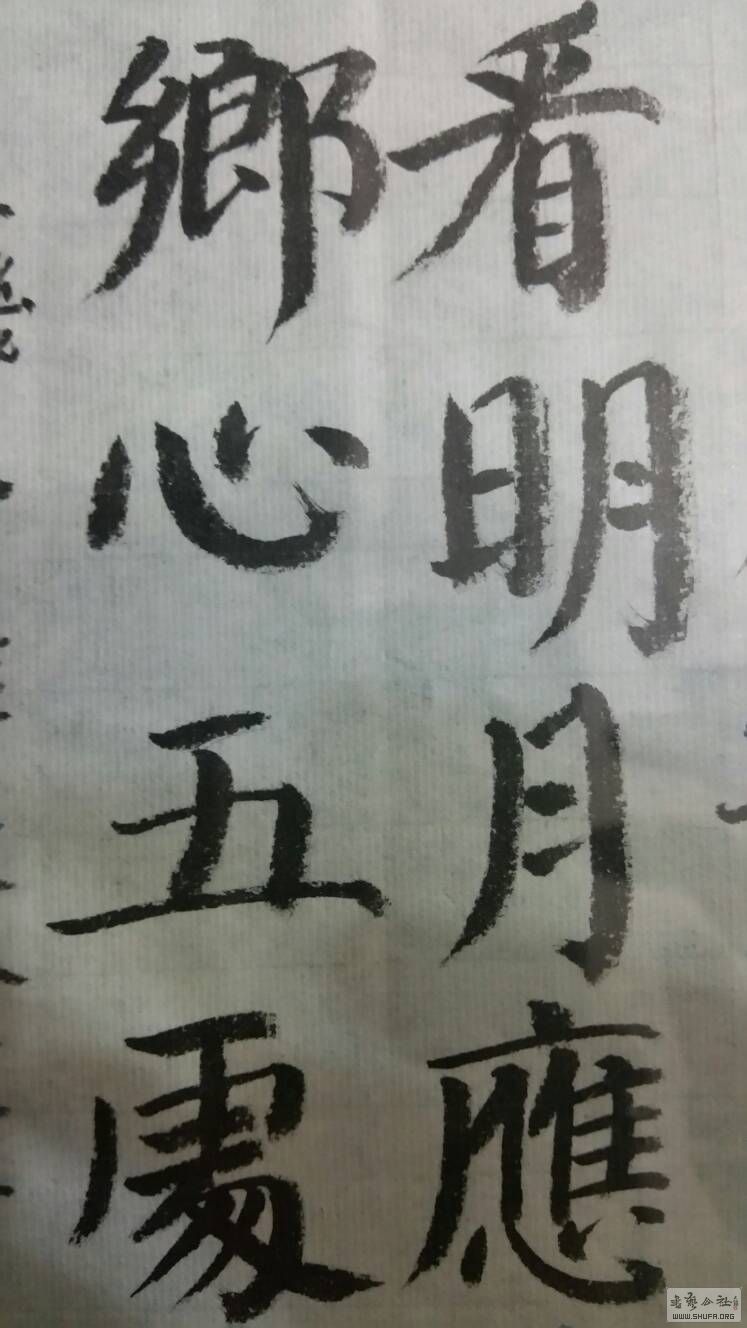 看明月應
鄉心五處
WWW.SHUFA.ORG